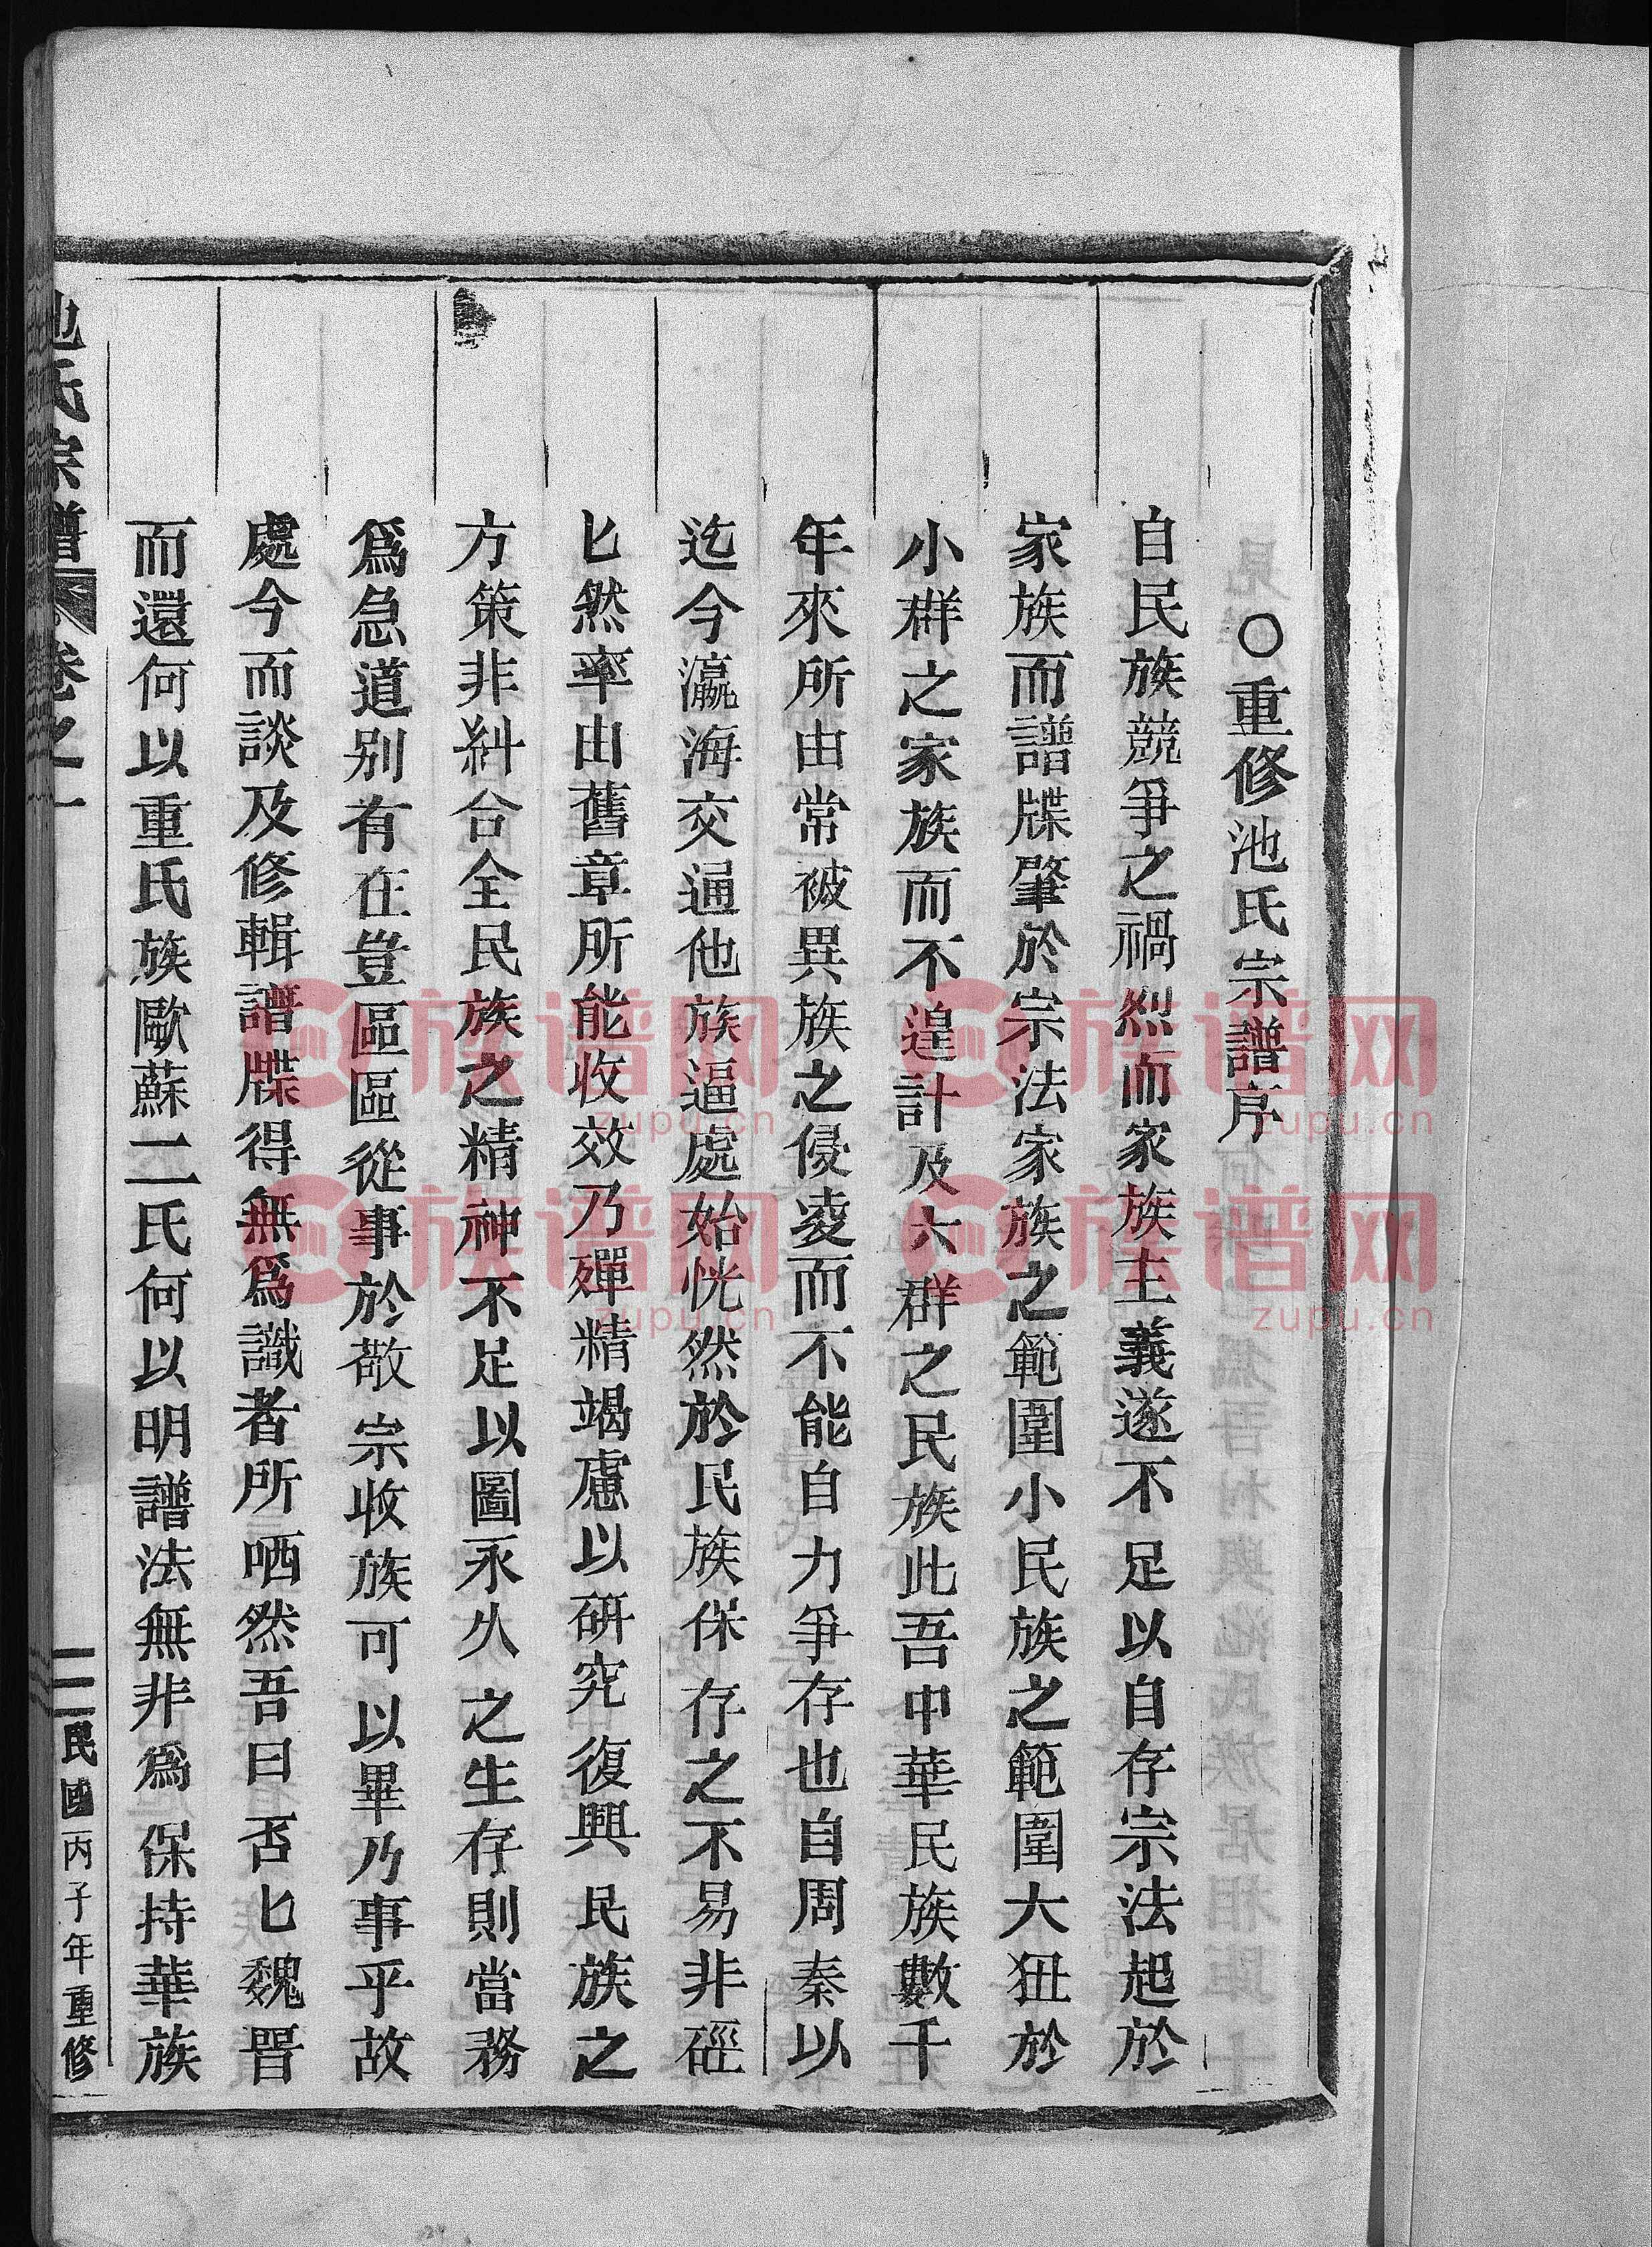 ○重修池氏宗譜序
自民族競爭之禍烈而家族主義遂不足以自存宗法起於
家族而譜牒肇於宗法家族之範圍小民族之範圍大狃於
小群之家族而不遑計及大群之民族此吾中華民族數千
年來所由常被異族之侵凌而不能自力爭存也自周秦以
迄今瀛海交通他族逼處始恍然於民族保存之不易非硜
匕然率由舊章所能收效乃殫精竭慮以研究復興民族之
方策非糾合全民族之精神不足以圖永久之生存則當務
爲急道別有在豈區區從事於敬宗收族可以畢乃事乎故
處今而談及修輯譜牒得無爲識者所哂然吾曰否匕魏晋
而還何以重氏族歐蘇二氏何以明譜法無非爲保持華族
池氏宗譜 卷之一 二 民國丙子年重修
族谱网
zupu.cn
族谱网
zupu.cn
族谱网
zupu.cn
族谱网
zupu.cn